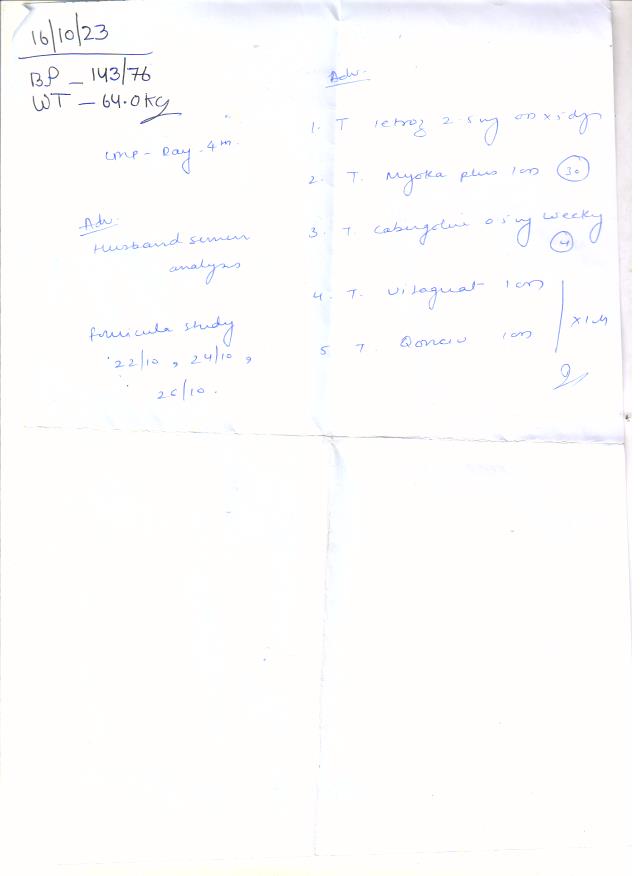 16/10/23
BP - 143/76
WT - 64.0 KG
LMP - Day 4th
Adv.
Husband semen
analysis
follicular study
22/10, 24/10,
26/10.
Adv.
1. T letroz 2.5mg OD x 5 dys
2. T. Myoka plus 1 OD (30)
3. T. Cabergoline 0.5mg weekly
(4)
4. T. 1 OD
5 T. 1 OD
x 1 M